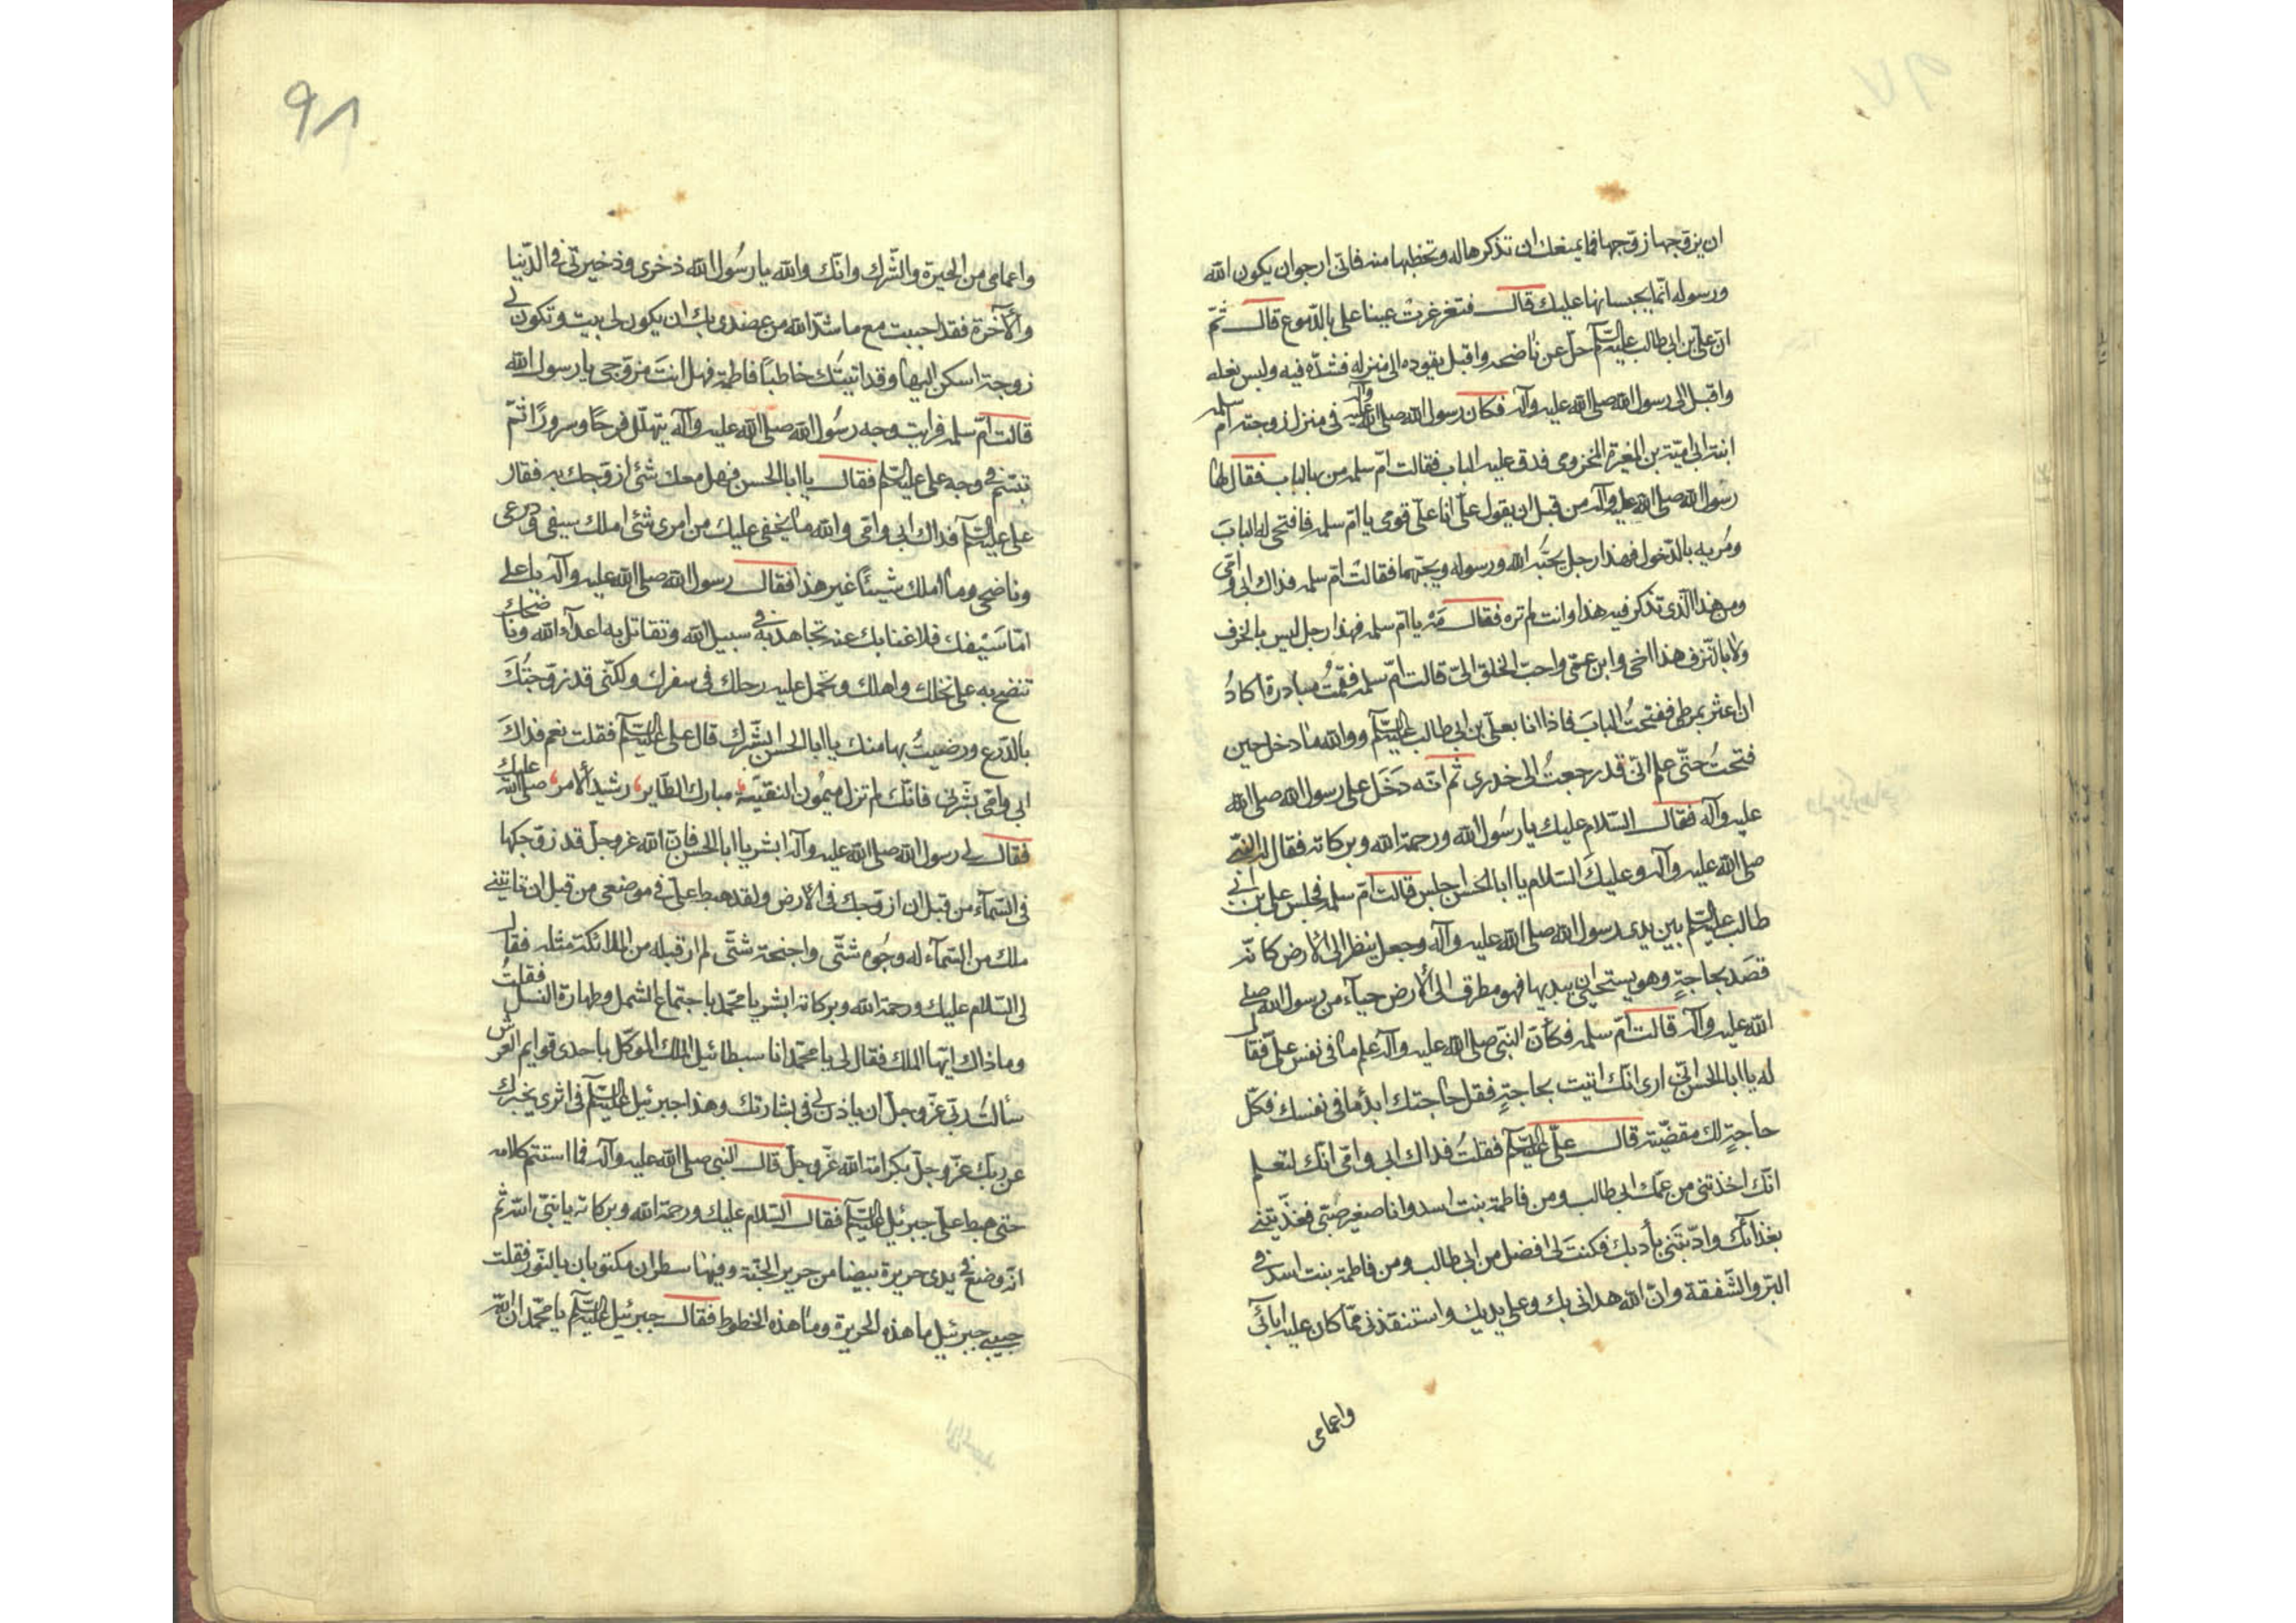 ان يزوّجها زوّجها فما يمنعك ان تذكرها له وتخطبها منه فانّى ارجو ان يكون الله
ورسوله انّما يحبسانها عليك قال فتغرغرت عينا على بالدّموع قال ثمّ
انّ علىّ بن ابى طالب عليه السّلام حلّ عن ناضحه واقبل يقوده الى منزله فشدّه فيه ولبس نعله
واقبل الى رسول الله صلى الله عليه وآله فكان رسول الله صلى الله عليه وآله فى منزل زوجته امّ سلمه
ابنة ابى اميّة بن المغيرة المخزومى فدق عليه الباب فقالت امّ سلمه من بالباب فقال لها
رسول الله صلى الله عليه وآله من قبل ان يقول علىّ انا علىّ قومى يا امّ سلمه فافتحى له البابَ
ومُريه بالدّخول فهذا رجل يحبّه الله ورسوله ويحبّهما فقالت امّ سلمه فداك ابى وامّى
ومن هذا الّذى تذكر فيه هذا وانت لم تره فقال مَهْ يا امّ سلمه فهذا رجل ليس بالخرف
ولا بالنزف هذا اخى وابن عمّى واحبّ الخلق الىّ قالت امّ سلمه فقمتُ مبادرة اكادُ
ان اعثر بمرطى ففتحتُ البابَ فاذا انا بعلىّ بن ابى طالب عليه السّلام ووالله ما دخل حين
فتحتُ حتّى علم انّى قد رجعتُ الى خدرى ثم انّه دَخَل على رسول الله صلى الله
عليه وآله فقال السّلام عليك يا رسُول الله ورحمة الله وبركاته فقال له النّبى
صلى الله عليه وآله وعليكَ السّلام يا ابا الحسن اجلس قالت امّ سلمه فجلس على بن ابى
طالب عليه السّلام بين يدى رسول الله صلى الله عليه وآله وجعل ينظر الى الارض كانّه
قصَد بحاجةٍ وهو يستحيى ان يبديها فهو مطرق الى الأرض حياء من رسول الله صلى
الله عليه وآله قالت امّ سلمه فكأنّ النّبى صلى الله عليه وآله علم ما فى نفس علىّ فقال
له يا ابا الحسن انّى ارى انّك اتيت بحاجةٍ فقل حاجتك ابد ما فى نفسك فكلّ
حاجةٍ لك مقضيّة قال علىّ عليه السّلام فقلتُ فداك ابى وامّى انّك لتعلم
انّك اخذتنى من عمّك ابى طالب ومن فاطمة بنت اسد وانا صغير صبّى فغذّيتنى
بغذائك وادّبتَنى بأدبك فكنتَ لى افضل من ابى طالب ومن فاطمة بنت اسد فى
البرّ والشّفقة وانّ الله هدانى بك وعلى يديك واستنقذنى ممّا كان عليه ابآئى
واعمامى
٩٨
واعمامى من الحيرة والشّرك وانّك والله يا رسُول الله ذخرى وذخيرتى فى الدّنيا
والآخرة فقد احببت مع ما شدّ الله من عضدى بك ان يكون لى بيت وتكون لى
زوجة اسكن اليها وقد اتيتُك خاطباً فاطمة فهل انتَ مزوّجى يا رسول الله
قالت امّ سلمه فرايت وجه رسُول الله صلى الله عليه وآله يتهلّل فرحًا وسرورًا ثمّ
تبسّم فى وجه على عليه السّلام فقال يا ابا الحسن فهل معك شئ ازوّجك به فقال
على عليه السّلام فداك ابى وامّى والله ما يخفى عليك من امرى شئ املك سيفى ودرعى
وناضحى وما املك شيئًا غير هذا فقال رسول الله صلى الله عليه وآله يا على
امّا سَيْفك فلا غنا بك عنه تجاهد به فى سبيل الله وتقاتل به اعدآء الله وناضحك
تنضح به على نخلك واهلك وتحمل عليه رحلك فى سفرك ولكنّى قد زوّجتُكَ
بالدّرع ورضيتُ بها منك يا ابا الحسن ابشّرك قال على عليه السّلام فقلت نعم فداكَ
ابى وامّى بشّرنى فانّك لم تزل ميمُون النقيبة، مبارك الطّاير، رشيد الأمر، صلى الله عليك
فقال لى رسول الله صلى الله عليه وآله ابشر يا ابا الحسن فانّ الله عزوجلّ قد زوّجكها
فى السّمآء من قبل ان ازوّجك فى الأرض ولقد هبط علىّ فى موضعى من قبل ان تاتينى
ملك من السّمآء له وجُوه شتّى واجنحة شتّى لم ار قبله من الملائكة مثله فقال
لى السّلام عليك ورحمة الله وبركاته ابشر يا محمّد باجتماع الشمل وطهارة النسل فقلتُ
وما ذاك ايّها الملك فقال لى يا محمّد انا سبطائيل الملك الموكّل باحدى قوايم العرش
سألتُ ربّى عزّوجلّ ان ياذن لى فى بشارتك وهذا جبرئيل عليه السّلام فى اثرى يخبرك
عن ربّك عزّوجلّ بكرامة الله عزّوجلّ قال النّبى صلى الله عليه وآله فما استتم كلامه
حتى هبط علىّ جبرئيل عليه السّلام فقال السّلام عليك ورحمة الله وبركاته يا نبىّ الله ثم
انّه وضع فى يدى حريرة بيضا من حرير الجنّة وفيها سطران مكتوبان بالنّور فقلت
حبيبى جبرئيل ما هذه الحريرة وما هذه الخطوط فقال جبرئيل عليه السّلام يا محمّد ان الله